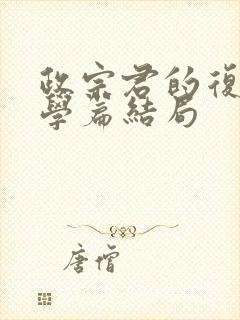 政宗君的復
學篇結局
唐僧